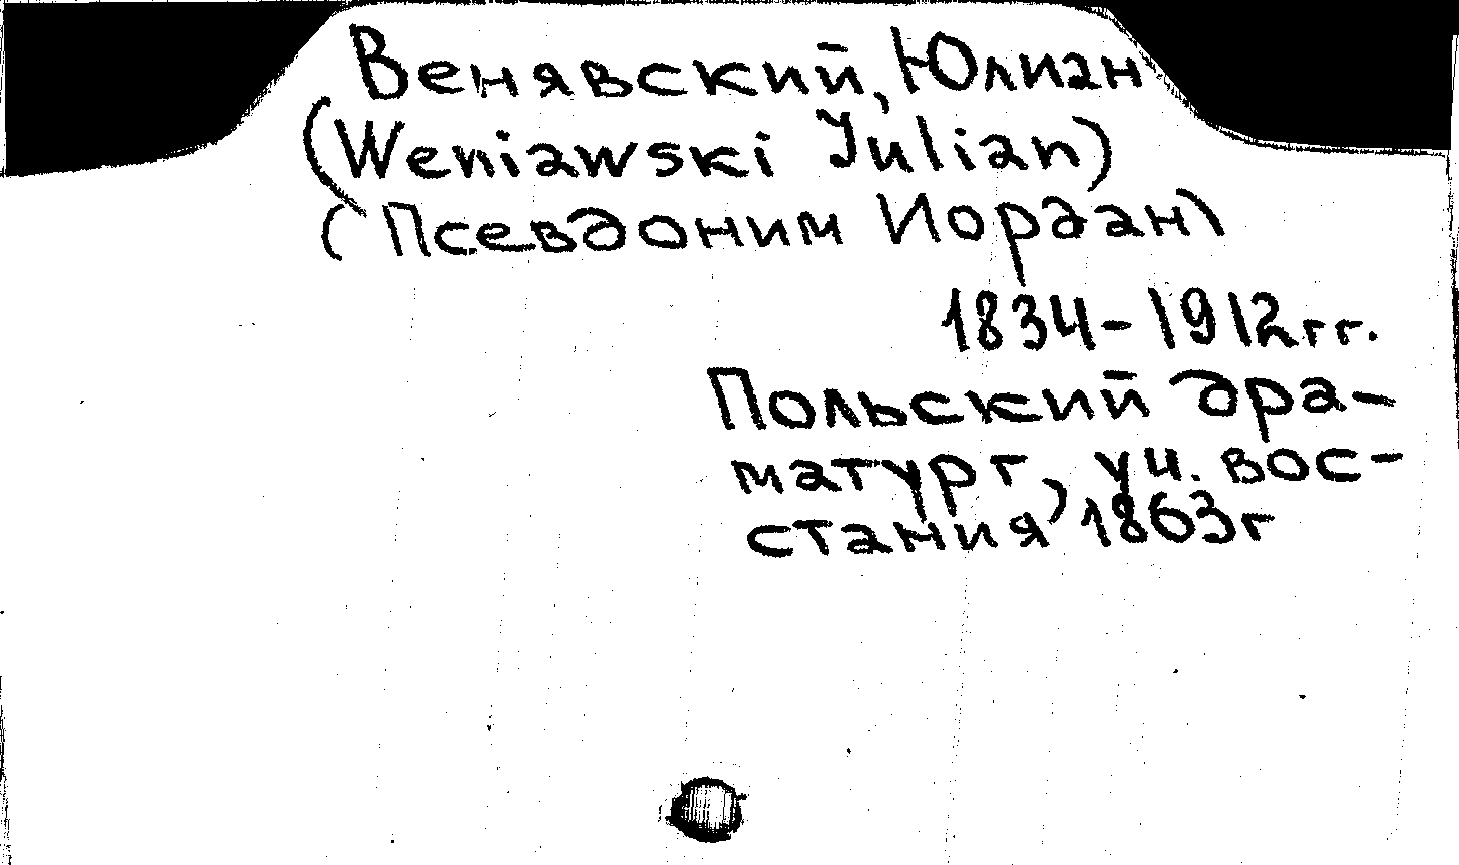 Венявский, Юлиан
(Weniawski Julian)
(Псевдоним Иордан)
1834-1912гг.
Польский дра-
матург, уч. вос-
стания 1863г